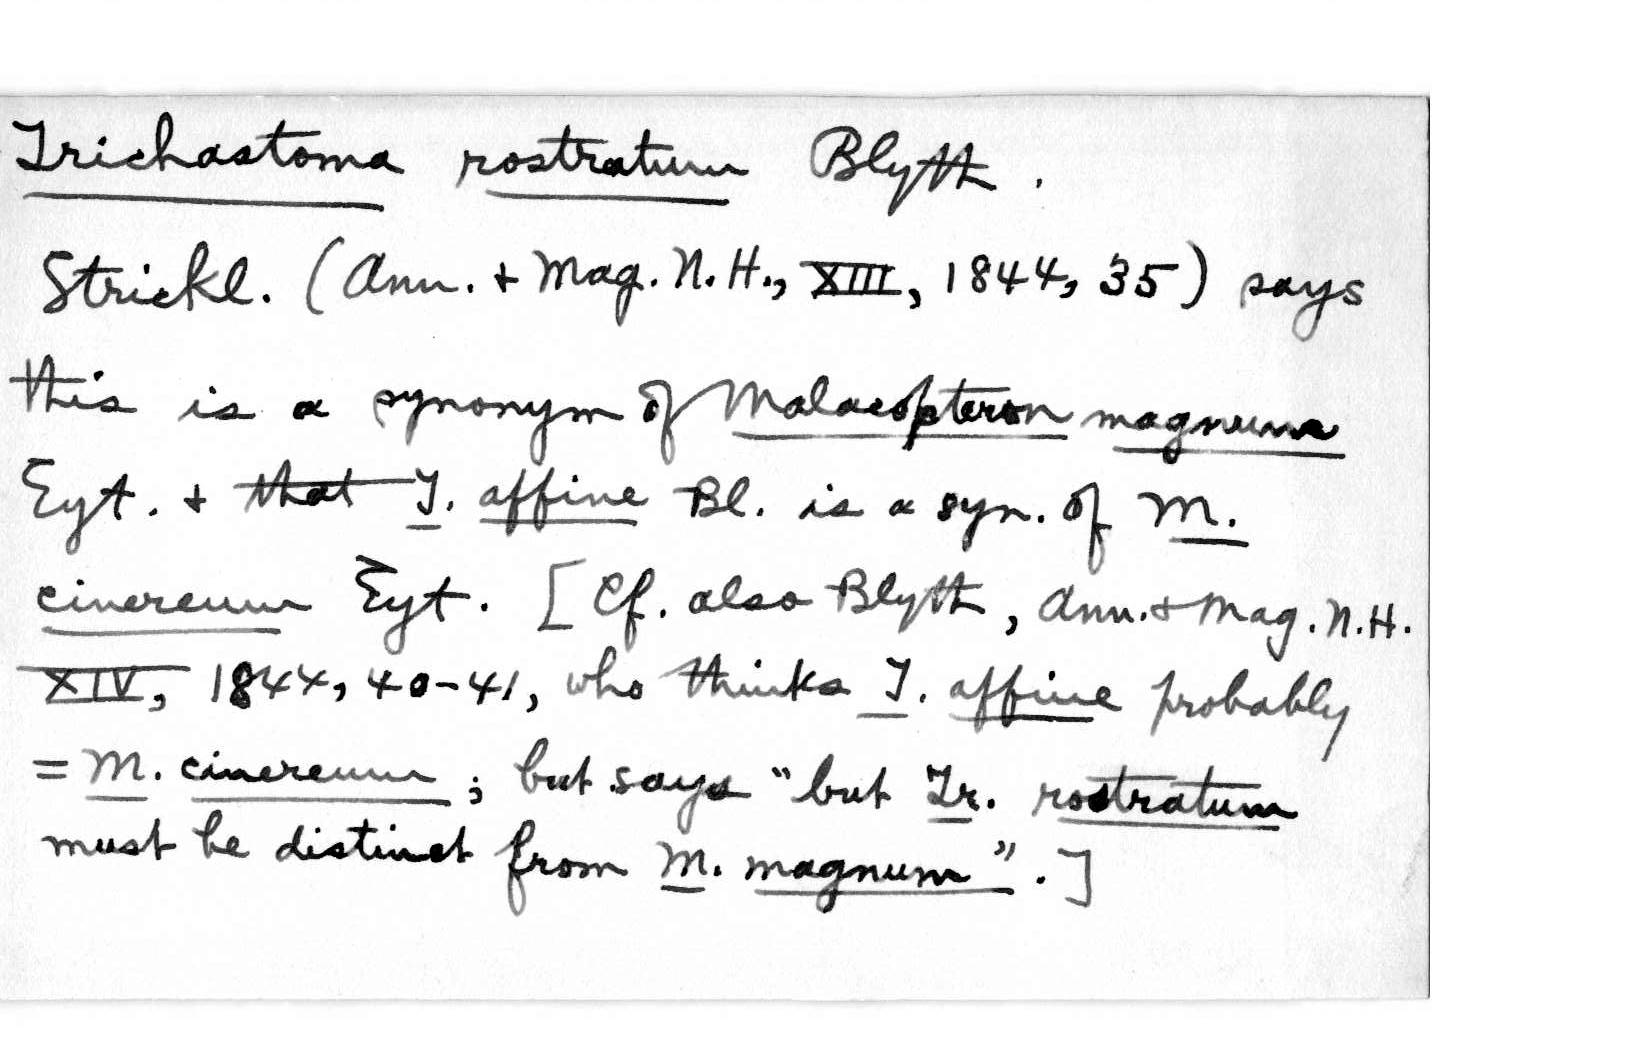 Trichastoma rostratum Blyth.
Strickl. (Ann. + Mag. N. H., XIII, 1844, 35) says
this is a synonym of Malacopteron magnum
Eyt. + that T. affine Bl. is a syn. of M.
cinereum Eyt. [Cf. also Blyth, Ann. + Mag. N. H.
XIV, 1844, 40-41, who thinks T. affine probably
= M. cinereum; but says "but Tr. rostratum
must be distinct from M. magnum".]